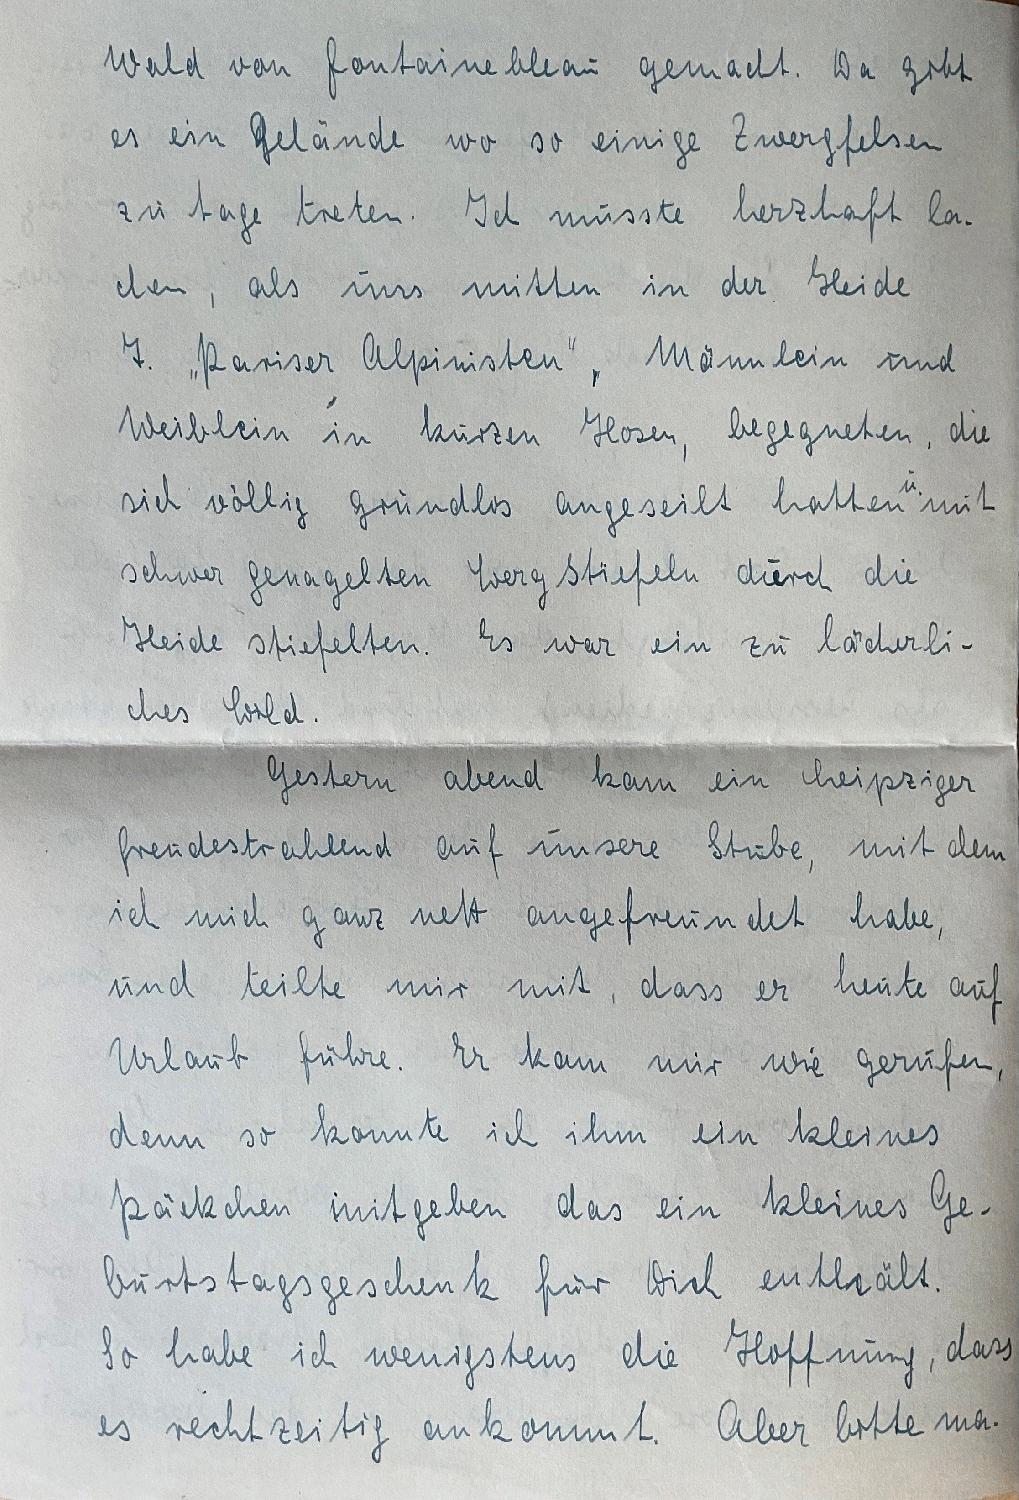 Wald von Fontainebleau gemacht. Da gibt
es ein Gelände wo so einige Zwergfelsen
zu tage treten. Ich musste herzhaft la-
chen, als uns mitten in der Heide
7. „Pariser Alpinisten“, Männlein und
Weiblein in kurzen Hosen, begegneten, die
sich völlig grundlos angeseilt hatten u. mit
schwer genagelten Bergstiefeln durch die
Heide stiefelten. Es war ein zu lächerli-
ches Bild.
Gestern abend kam ein Leipziger
freudestrahlend auf unsere Stube, mit dem
ich mich ganz nett angefreundet habe,
und teilte mir mit, dass er heute auf
Urlaub führe. Er kam mir wie gerufen,
denn so konnte ich ihm ein kleines
Päckchen mitgeben das ein kleines Ge-
burtstagsgeschenk für Dich enthält.
So habe ich wenigstens die Hoffnung, dass
es rechtzeitig ankommt. Aber bitte ma-